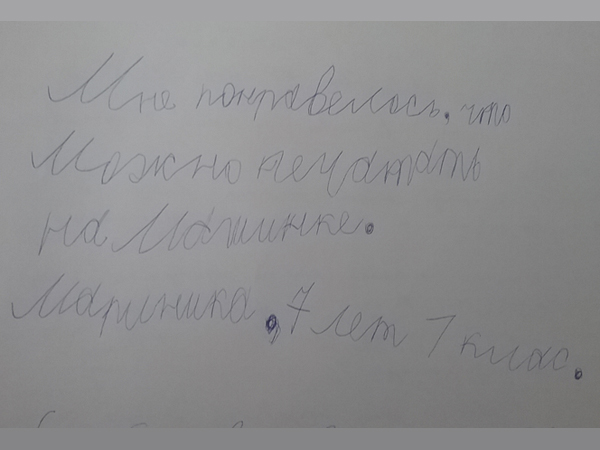 Мне понравелось, что
Можно печатать
на Машинке.
Мариника, 7 лет 1 клас.